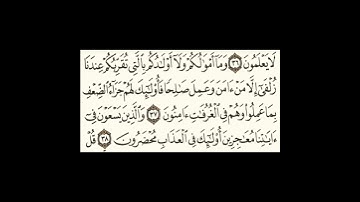 لَا يَعْلَمُونَ ٣٦ وَمَآ أَمْوَٰلُكُمْ وَلَآ أَوْلَٰدُكُم بِٱلَّتِى تُقَرِّبُكُمْ عِندَنَا
زُلْفَىٰٓ إِلَّا مَنْ ءَامَنَ وَعَمِلَ صَٰلِحًا فَأُو۟لَٰٓئِكَ لَهُمْ جَزَآءُ ٱلضِّعْفِ
بِمَا عَمِلُوا۟ وَهُمْ فِى ٱلْغُرُفَٰتِ ءَامِنُونَ ٣٧ وَٱلَّذِينَ يَسْعَوْنَ فِىٓ
ءَايَٰتِنَا مُعَٰجِزِينَ أُو۟لَٰٓئِكَ فِى ٱلْعَذَابِ مُحْضَرُونَ ٣٨ قُلْ